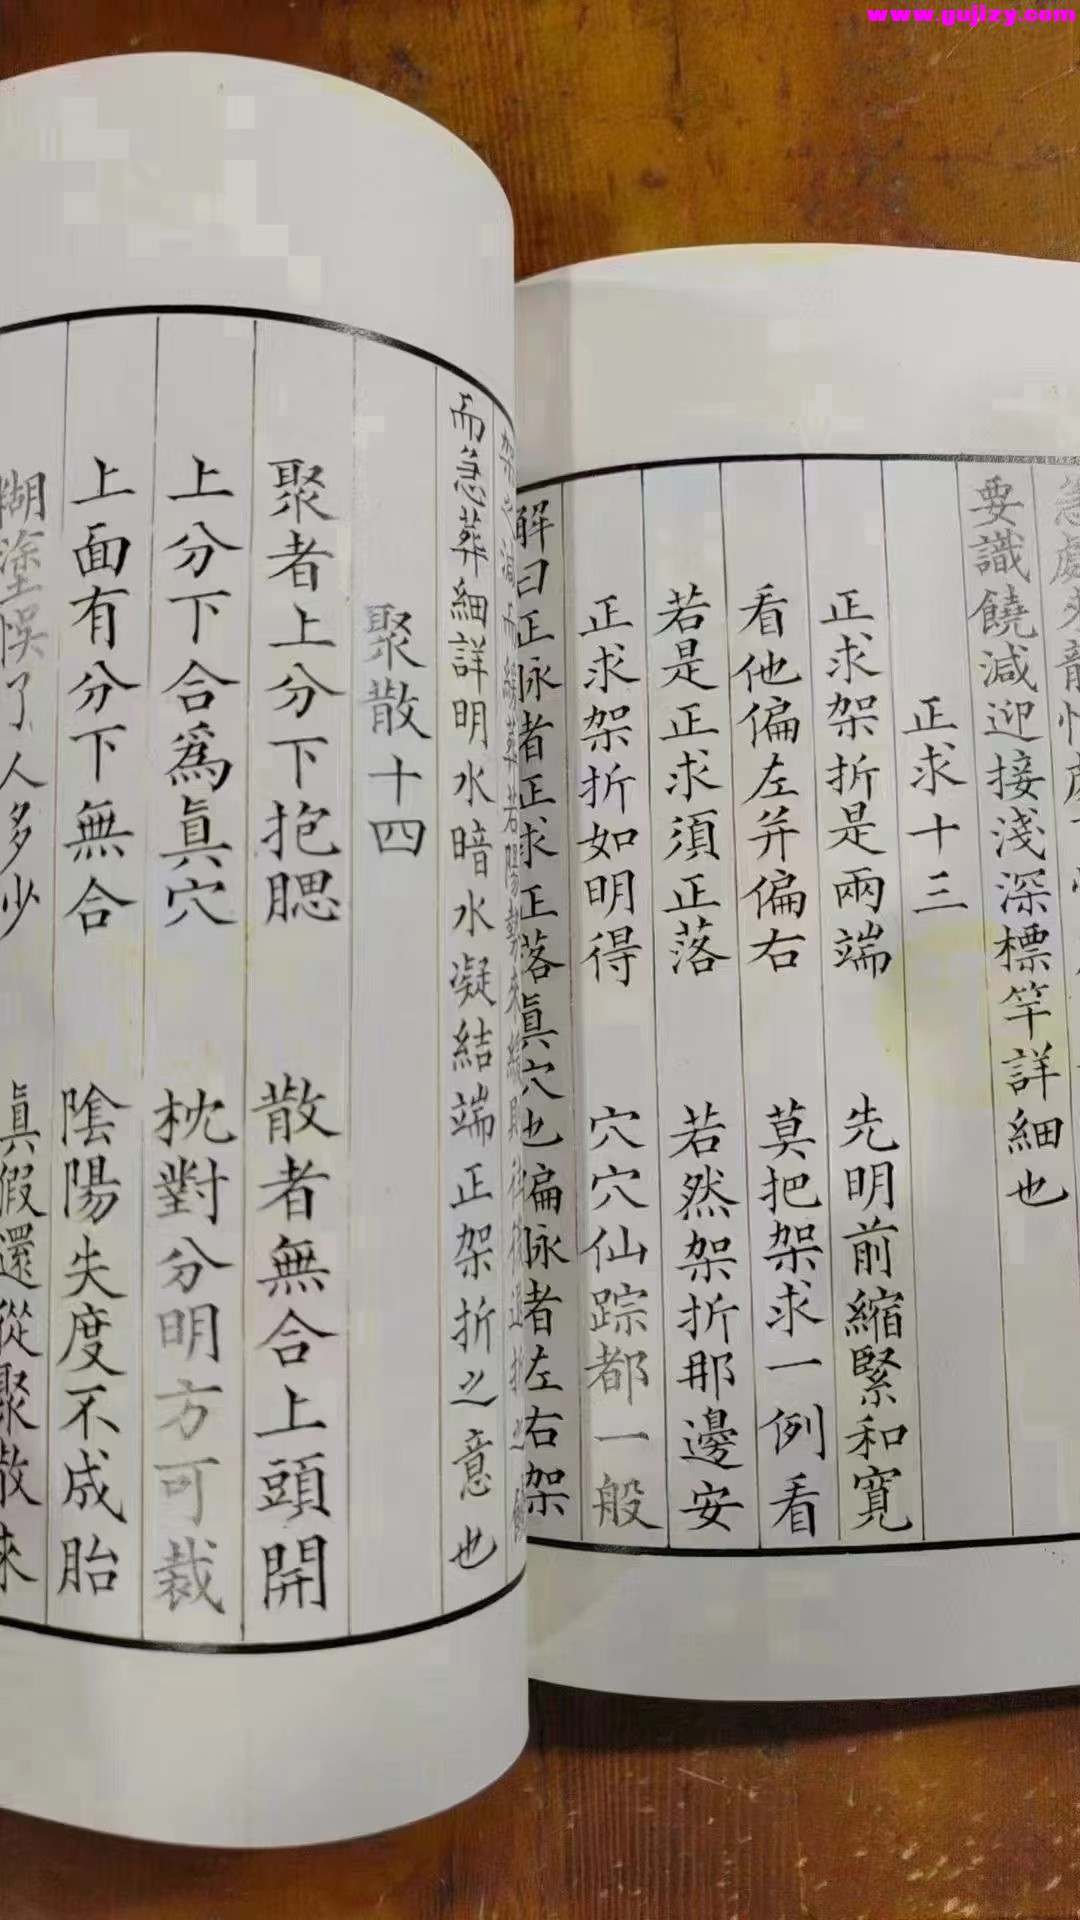 www.gujizy.com
要識饒減迎接淺深標竿詳細也
正求十三
正求架折是兩端 先明前縮緊和寬
看他偏左并偏右 莫把架求一例看
若是正求須正落 若然架折那邊安
正求架折如明得 穴穴仙踪都一般
解曰正脉者正求正落真穴也偏脉者左右架
而急葬細詳明水暗水凝結端正架折之意也
聚散十四
聚者上分下抱腮 散者無合上頭開
上分下合為真穴 枕對分明方可裁
上面有分下無合 陰陽失度不成胎
糊塗悞了人多少 真假還從聚散來